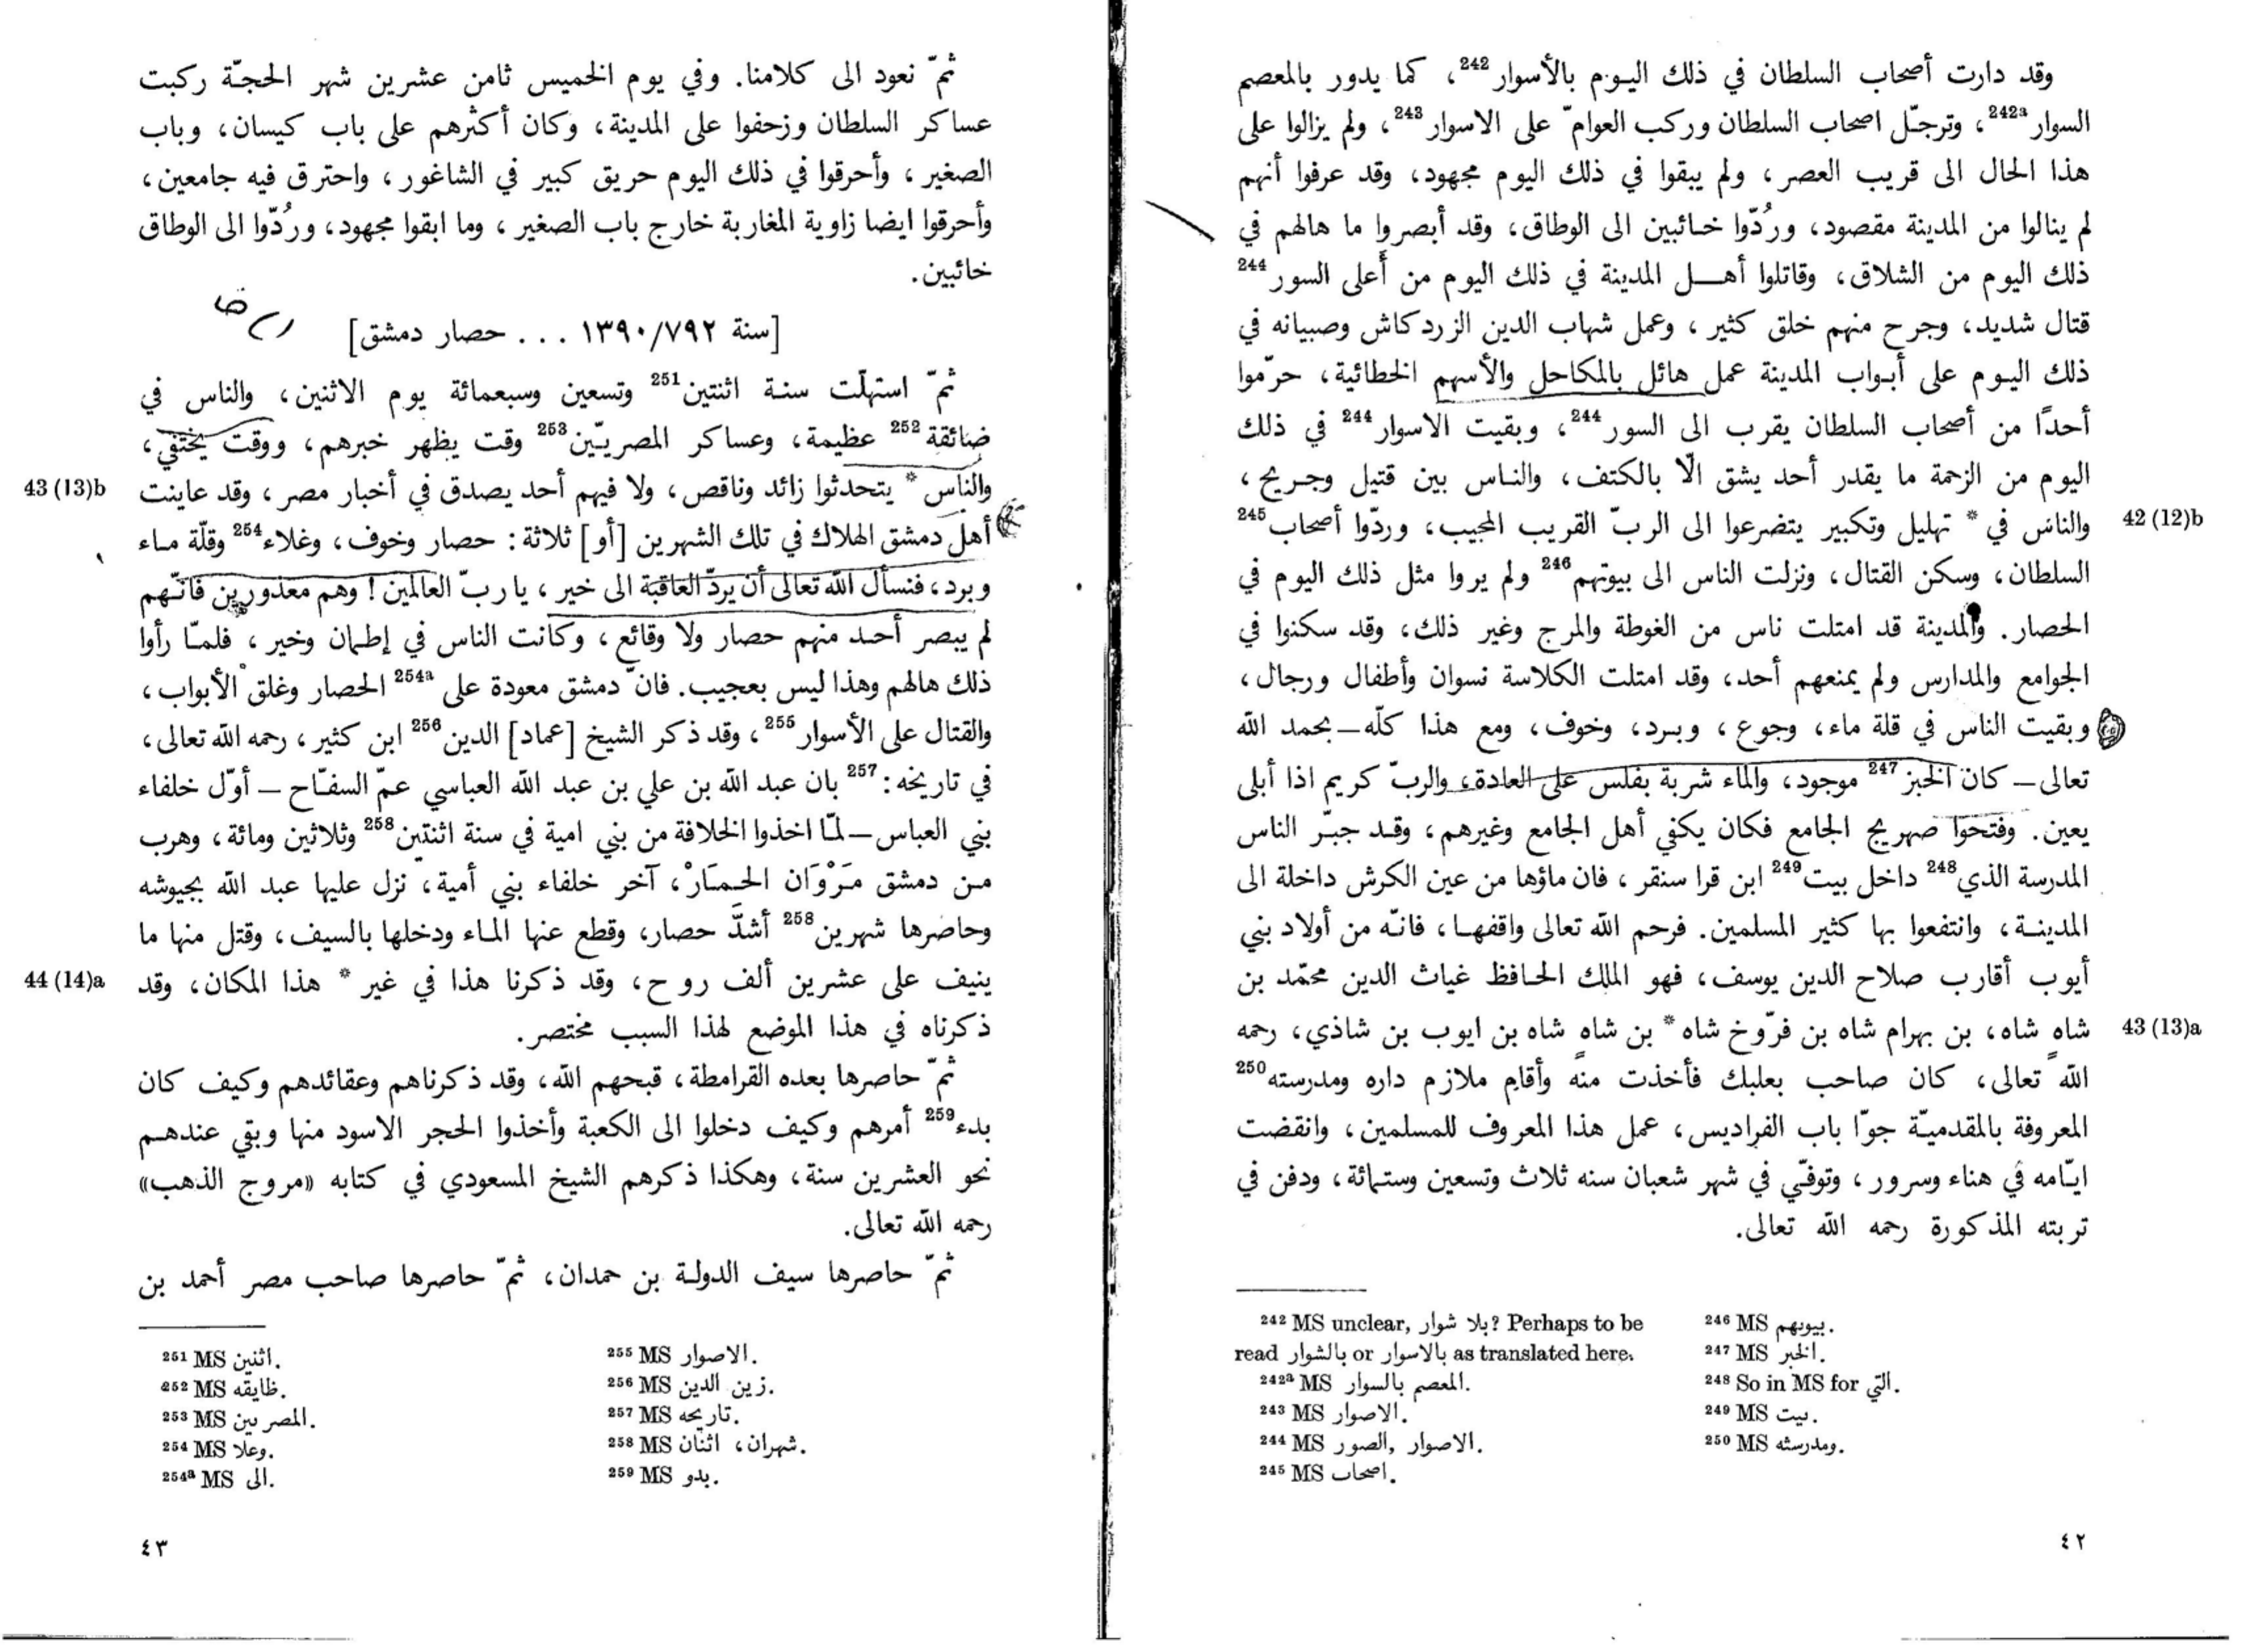 وقد دارت أصحاب السلطان في ذلك اليوم بالأسوار242، كما يدور بالمعصم
السوار242a، وترجّل اصحاب السلطان وركب العوامّ على الاسوار243، ولم يزالوا على
هذا الحال الى قريب العصر، ولم يبقوا في ذلك اليوم مجهود، وقد عرفوا أنهم
لم ينالوا من المدينة مقصود، ورُدّوا خائبين الى الوطاق، وقد أبصروا ما هالهم في
ذلك اليوم من الشلاق، وقاتلوا أهل المدينة في ذلك اليوم من أعلى السور244
قتال شديد، وجرح منهم خلق كثير، وعمل شهاب الدين الزردكاش وصبيانه في
ذلك اليوم على أبواب المدينة عمل هائل بالمكاحل والأسهم الخطائية، حرّموا
أحدًا من أصحاب السلطان يقرب الى السور244، وبقيت الاسوار244 في ذلك
اليوم من الزحمة ما يقدر أحد يشق الّا بالكتف، والناس بين قتيل وجريح،
42 (12)b
والناس في * تهليل وتكبير يتضرعوا الى الربّ القريب المجيب، وردّوا أصحاب245
السلطان، وسكن القتال، ونزلت الناس الى بيوتهم246 ولم يروا مثل ذلك اليوم في
الحصار. والمدينة قد امتلت ناس من الغوطة والمرج وغير ذلك، وقد سكنوا في
الجوامع والمدارس ولم يمنعهم أحد، وقد امتلت الكلاسة نسوان وأطفال ورجال،
وبقيت الناس في قلة ماء، وجوع، وبرد، وخوف، ومع هذا كلّه — بحمد الله
تعالى — كان الخبز247 موجود، والماء شربة بفلس على العادة، والربّ كريم اذا أبلى
يعين. وفتحوا صهريج الجامع فكان يكفي أهل الجامع وغيرهم، وقد جبّر الناس
المدرسة الذي248 داخل بيت249 ابن قرا سنقر، فان ماؤها من عين الكرش داخلة الى
المدينة، وانتفعوا بها كثير المسلمين. فرحم الله تعالى واقفها، فانّه من أولاد بني
أيوب أقارب صلاح الدين يوسف، فهو الملك الحافظ غياث الدين محمّد بن
43 (13)a
شاه شاه، بن بهرام شاه بن فرّوخ شاه * بن شاه شاه بن ايوب بن شاذي، رحمه
الله تعالى، كان صاحب بعلبك فأخذت منه وأقام ملازم داره ومدرسته250
المعروفة بالمقدميّة جوّا باب الفراديس، عمل هذا المعروف للمسلمين، وانقضت
ايّامه في هناء وسرور، وتوفّي في شهر شعبان سنه ثلاث وتسعين وستمائة، ودفن في
تربته المذكورة رحمه الله تعالى.
242 MS unclear, بلا شوار? Perhaps to be
read بالشوار or بالاسوار as translated here.
242a MS المعصم بالسوار.
243 MS الاصوار.
244 MS الاصوار, الصور.
245 MS اصحاب.
246 MS بيوبهم.
247 MS الخبر.
248 So in MS for التي.
249 MS بيت.
250 MS ومدرسثه.
٤٢
ثمّ نعود الى كلامنا. وفي يوم الخميس ثامن عشرين شهر الحجّة ركبت
عساكر السلطان وزحفوا على المدينة، وكان أكثرهم على باب كيسان، وباب
الصغير، وأحرقوا في ذلك اليوم حريق كبير في الشاغور، واحترق فيه جامعين،
وأحرقوا ايضا زاوية المغاربة خارج باب الصغير، وما ابقوا مجهود، ورُدّوا الى الوطاق
خائبين.
[سنة ١٣٩٠/٧٩٢ ... حصار دمشق]
ثمّ استهلّت سنة اثنتين251 وتسعين وسبعمائة يوم الاثنين، والناس في
ضائقة252 عظيمة، وعساكر المصريّين253 وقت يظهر خبرهم، ووقت يختفي،
43 (13)b
والناس * يتحدثوا زائد وناقص، ولا فيهم أحد يصدق في أخبار مصر، وقد عاينت
أهل دمشق الهلاك في تلك الشهرين [أو] ثلاثة: حصار وخوف، وغلاء254 وقلّة ماء
وبرد، فنسأل الله تعالى أن يردّ العاقبة الى خير، يا ربّ العالمين! وهم معذورين فانّهم
لم يبصر أحد منهم حصار ولا وقائع، وكانت الناس في إطمان وخير، فلمّا رأوا
ذلك هالهم وهذا ليس بعجيب. فانّ دمشق معودة على254a الحصار وغلق الأبواب،
والقتال على الأسوار255، وقد ذكر الشيخ [عماد] الدين256 ابن كثير، رحمه الله تعالى،
في تاريخه:257 بان عبد الله بن علي بن عبد الله العباسي عمّ السفّاح — أوّل خلفاء
بني العباس — لمّا اخذوا الخلافة من بني امية في سنة اثنتين258 وثلاثين ومائة، وهرب
من دمشق مَرْوَان الحمَارْ، آخر خلفاء بني أمية، نزل عليها عبد الله بجيوشه
وحاصرها شهرين258 أشدَّ حصار، وقطع عنها الماء ودخلها بالسيف، وقتل منها ما
44 (14)a
ينيف على عشرين ألف روح، وقد ذكرنا هذا في غير * هذا المكان، وقد
ذكرناه في هذا الموضع لهذا السبب مختصر.
ثمّ حاصرها بعده القرامطة، قبحهم الله، وقد ذكرناهم وعقائدهم وكيف كان
بدء259 أمرهم وكيف دخلوا الى الكعبة وأخذوا الحجر الاسود منها وبقي عندهم
نحو العشرين سنة، وهكذا ذكرهم الشيخ المسعودي في كتابه «مروج الذهب»
رحمه الله تعالى.
ثمّ حاصرها سيف الدولة بن حمدان، ثمّ حاصرها صاحب مصر أحمد بن
251 MS اثنين.
252 MS ظايقه.
253 MS المصربين.
254 MS وعلا.
254a MS الى.
255 MS الاصوار.
256 MS زين الدين.
257 MS تاريحه.
258 MS شهران، اثنان.
259 MS بدو.
٤٣